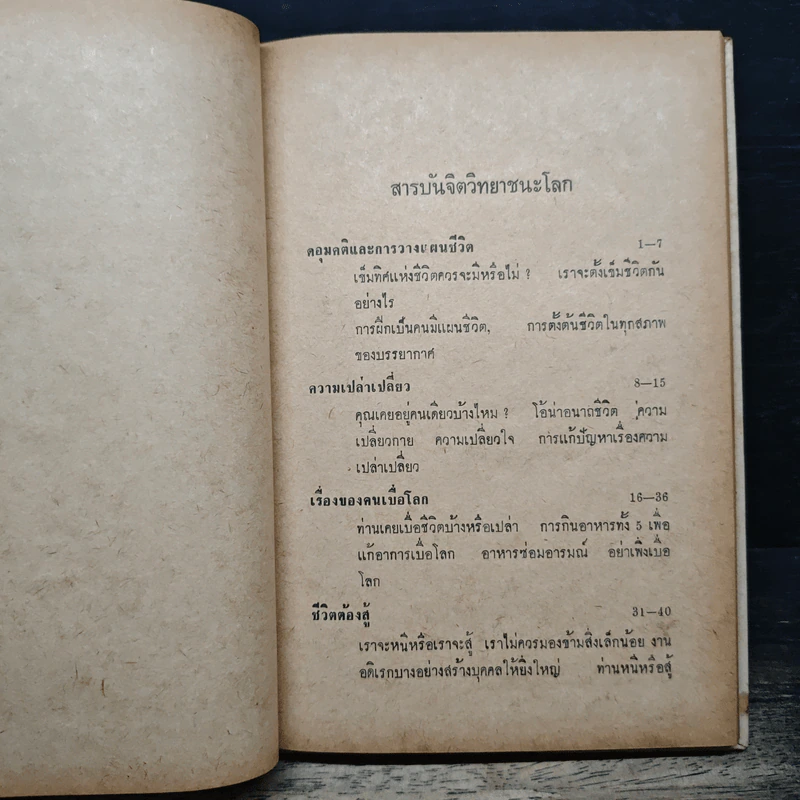 สารบันจิตวิทยาชนะโลก
คอุมคติและการวางแผนชีวิต 1—7
เข็มทิศแห่งชีวิตควรจะมีหรือไม่ ? เราจะตั้งเข็มชีวิตกัน
อย่างไร
การฝึกเป็นคนมีแผนชีวิต, การตั้งต้นชีวิตในทุกสภาพ
ของบรรยากาศ
ความเปล่าเปลี่ยว 8—15
คุณเคยอยู่คนเดียวบ้างไหม ? โอ้น่าอนาถชีวิต ความ
เปลี่ยวกาย ความเปลี่ยวใจ การแก้ปัญหาเรื่องความ
เปล่าเปลี่ยว
เรื่องของคนเบื่อโลก 16—36
ท่านเคยเบื่อชีวิตบ้างหรือเปล่า การกินอาหารทั้ง 5 เพื่อ
แก้อาการเบื่อโลก อาหารซ่อมอารมณ์ อย่าเพิ่งเบื่อ
โลก
ชีวิตต้องสู้ 31—40
เราจะหนีหรือเราจะสู้ เราไม่ควรมองข้ามสิ่งเล็กน้อย งาน
อดิเรกบางอย่างสร้างบุคคลให้ยิ่งใหญ่ ท่านหนีหรือสู้